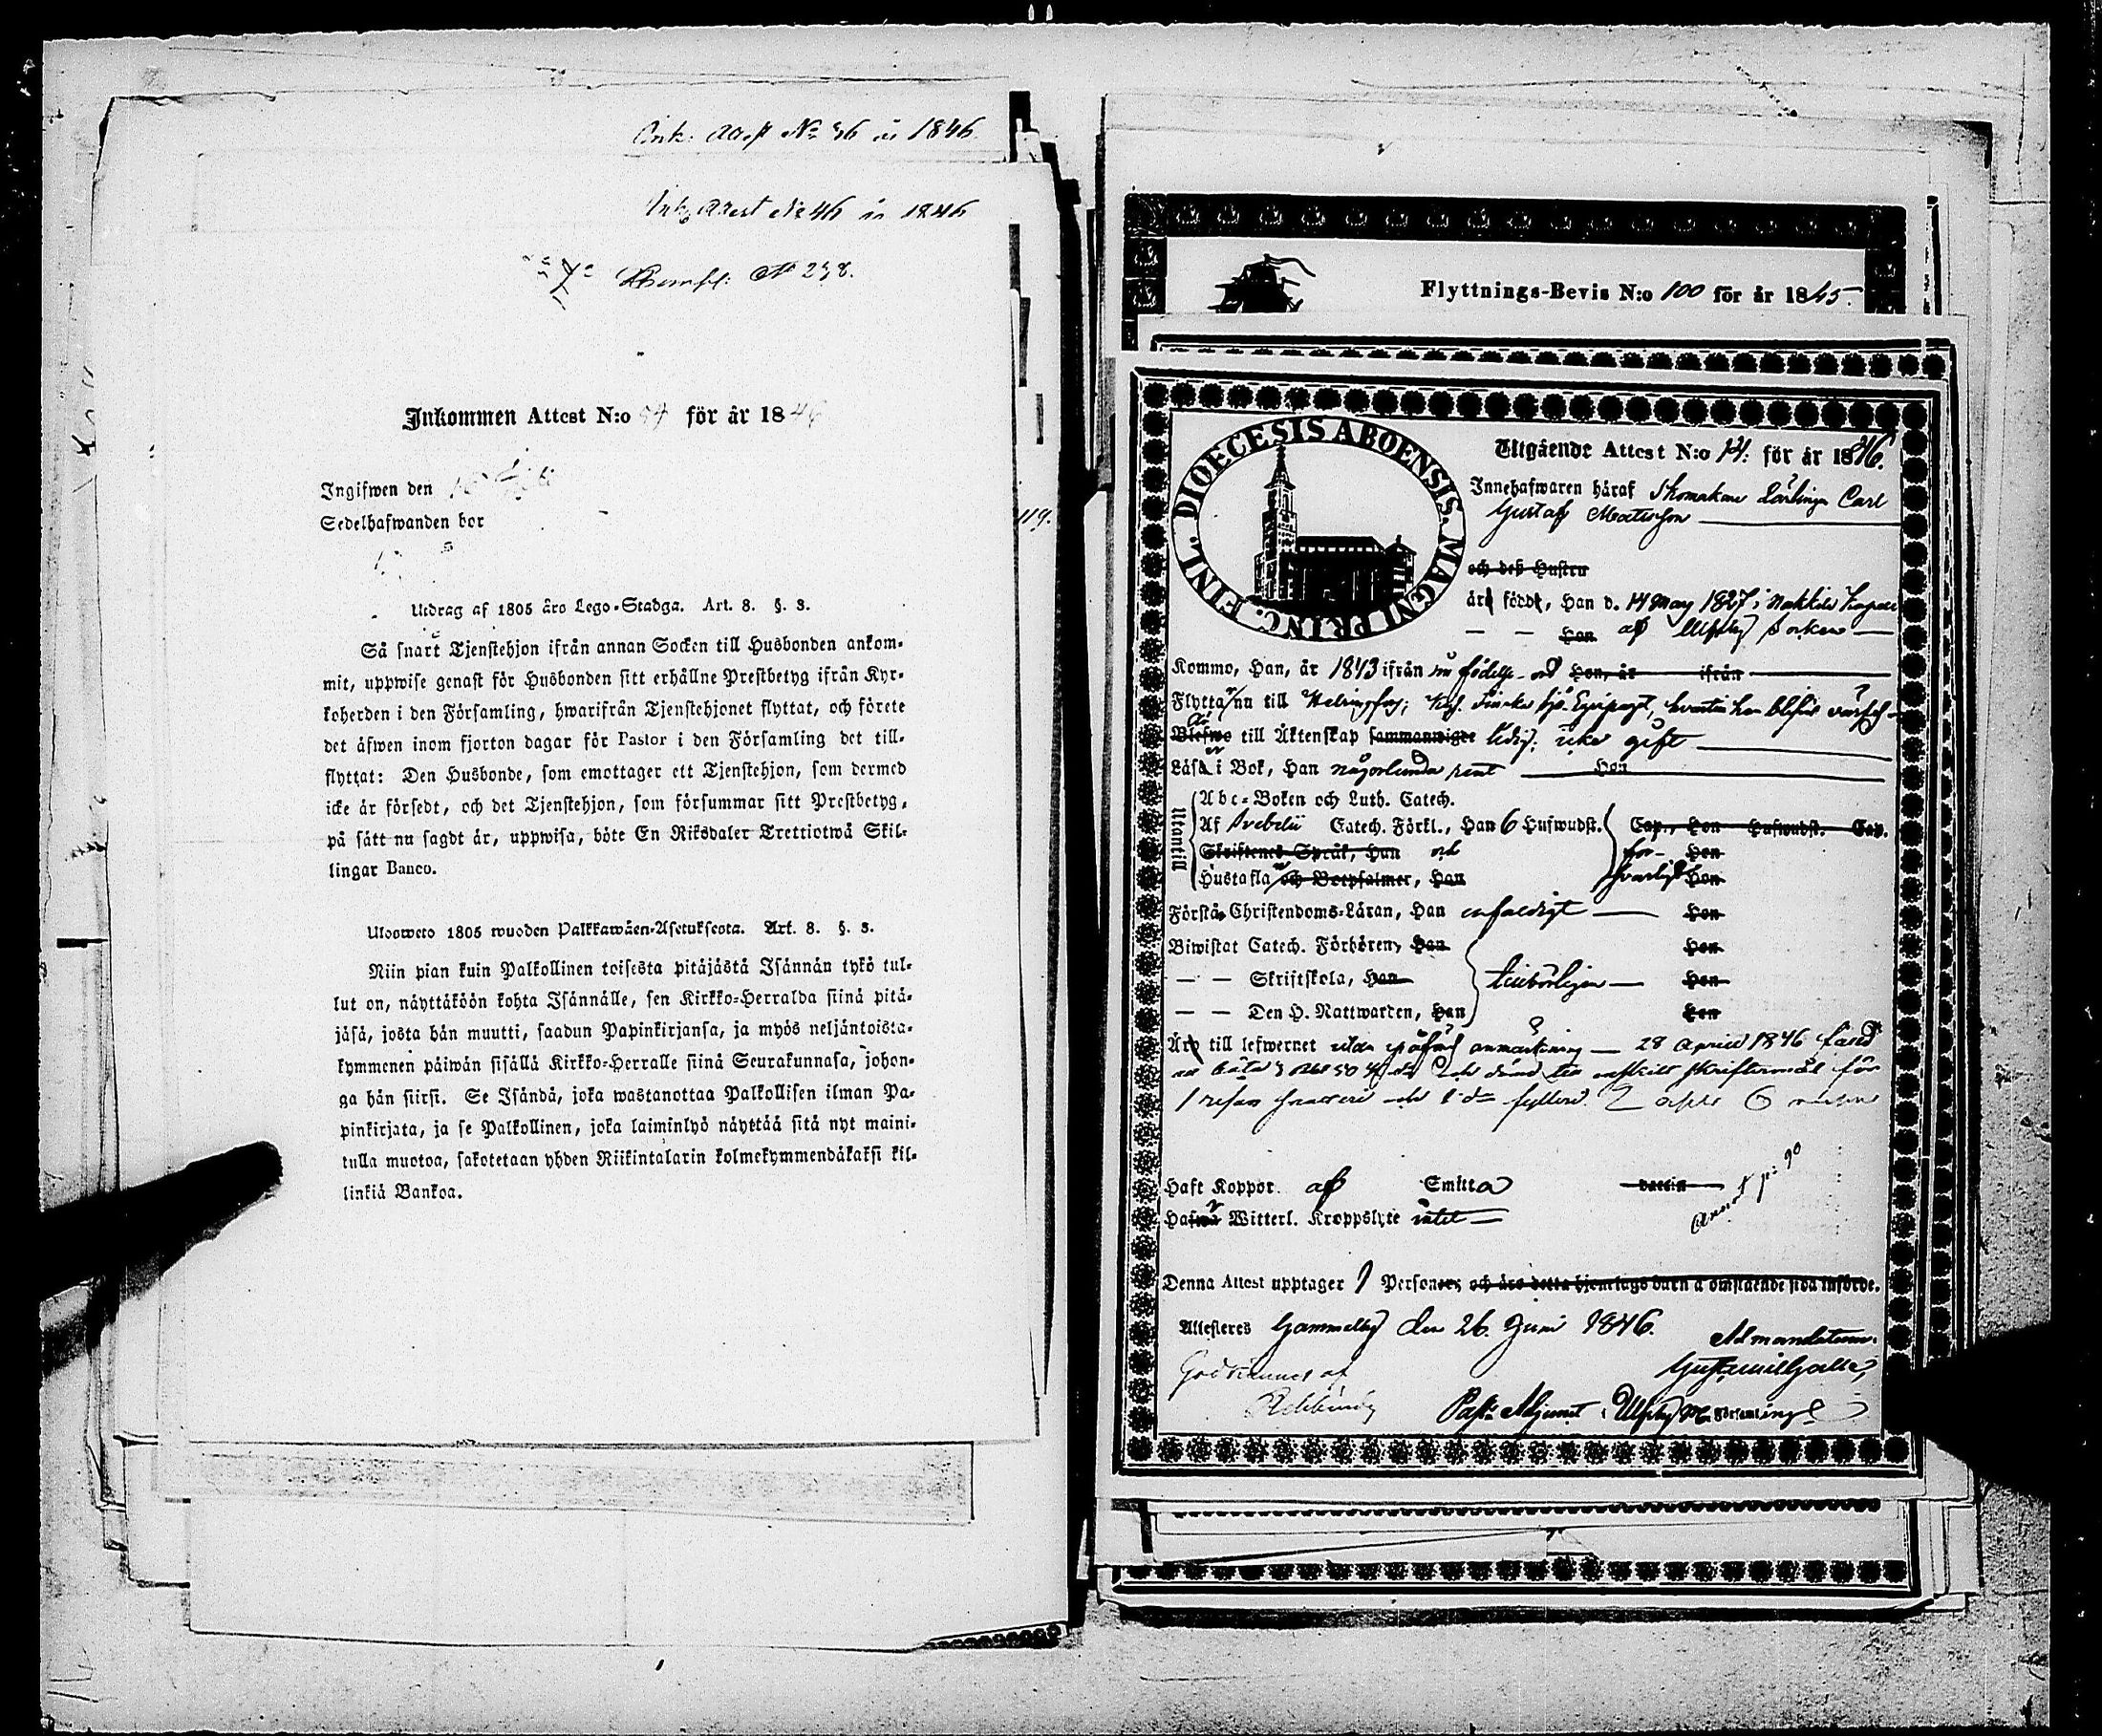 Ink: Attest No 36 år 1846.
Ink. Attest No 46 år 1846
No 238.
Inkommen Attest N:o 54 för år 1846
Ingifwen den
Sedelhafwanden bor
Utdrag af 1805 åro Lego-Stadga. Art. 8. §. 3.
Så snart Tjenstehjon ifrån annan Socken till Husbonden ankom-
mit, uppwise genast för Husbonden sitt erhållne Prestbetyg ifrån Kyr-
koherden i den Församling, hwarifrån Tjenstehjonet flyttat, och förete
det äfwen inom fjorton dagar för Pastor i den Församling det till-
flyttat: Den Husbonde, som emottager ett Tjenstehjon, som dermed
icke är försedt, och det Tjenstehjon, som försummar sitt Prestbetyg,
på sätt nu sagdt är, uppwisa, böte En Riksdaler Trettiotwå Skil-
lingar Banco.
Uloosweto 1805 wuoden Palkkawäen-Asetuksesta. Art. 8. §. 3.
Niin pian kuin Palkollinen toisesta pitäjästä Isännän tykö tul-
lut on, näyttäköön kohta Isännälle, sen Kirkko-Herralda siinä pitä-
jäsä, josta hän muutti, saadun Papinkirjansa, ja myös neljäntoista-
kymmenen päiwän sisällä Kirkko-Herralle siinä Seurakunnasa, johon-
ga hän siirsi. Se Isändä, joka wastanottaa Palkollisen ilman Pa-
pinkirjata, ja se Palkollinen, joka laiminlyö näyttää sitä nyt maini-
tulla muotoa, sakotetaan yhden Riikintalarin kolmekymmendäkaksi kil-
linkiä Bankoa.
119.
Flyttnings-Bevis N:o 100 för år 1845.
DIOECESIS ABOENSIS. MAGNI PRINC. FINL.
Utgående Attest N:o 14. för år 1846.
Innehafwaren häraf Skomakare Lärlingen Carl
Gustaf Matsson
och deß Hustru
äro född, Han d. 14 May 1827 i Nakkila Kapell
Hon af Ulfsby Socken
Kommo, Han, år 1843 ifrån födelse ord Hon, år ifrån
Flytta nu till Helsingfors, Kejs. Finska Sjö Equipaget, hvartill han blifvit
Blefwo till Äktenskap sammanwigde ledig; icke gift
Läsa i Bok, Han någorlunda rent Hon
Utantill
Abc-Boken och Luth. Catech.
Af Svebelii Catech. Förkl., Han 6 Hufwudst. Cap., Hon Hufwudst. Cap.
Skriftenes Språk, Han och for- Hon
Hustafla och Botpsalmer, Han svarligt Hon
Förstå Christendoms-Läran, Han enfaldigt Hon
Biwistat Catech. Förhören, Han Hon
— — Skriftskola, Han tillbörligen Hon
— — Den H. Nattwarden, Han Hon
Äro till lefwernet utan anmärkning — 28 April 1846
enskilt skriftermål för
1 resan och 1 d:o fylleri
Haft Koppor af Smitta vaccin
Hafwa Witterl. Kroppslyte intet
Annot p: 90
Denna Attest upptager 1 Personer, och äro detta hjonelags barn å omstående sida införde.
Attesteres Gammelby den 26. Juni 1846.
Ad mandatum.
Godkännes af
Past: Adjunct i Ulfsby Församling